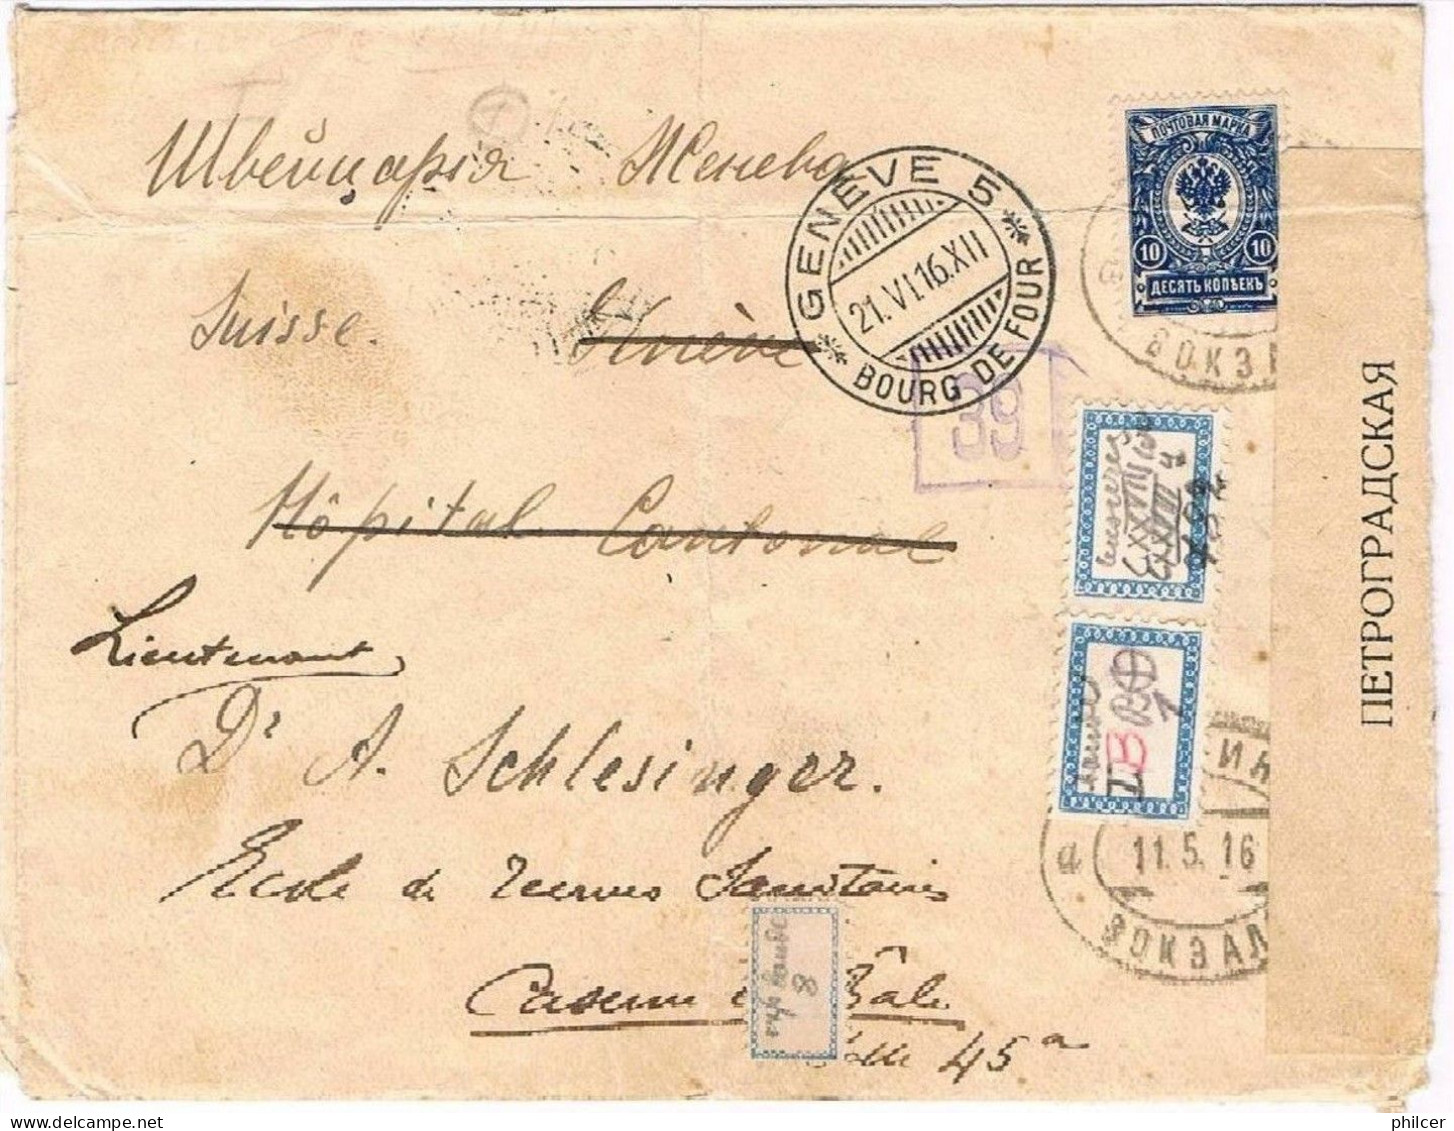 Швейцарія Женева
Suisse. Genève
Hôpital Cantonal
Lieutenant
Dr A. Schlesinger.
Ecole de recrues Sanitaires
Caserne Bâle
45a
ПОЧТОВАЯ МАРКА
10 10
ДЕСЯТЬ КОПѢЕКЪ
ВОКЗ
GENÈVE 5
21.VI.16.XII
BOURG DE FOUR
39
ПЕТРОГРАДСКАЯ
B
a 11.5.16
ВОКЗАЛ
8
philcer